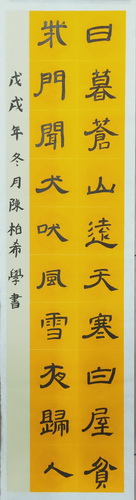 日暮蒼山遠天寒白屋貧
柴門聞犬吠風雪夜歸人
戊戌年冬月陳柏希學書